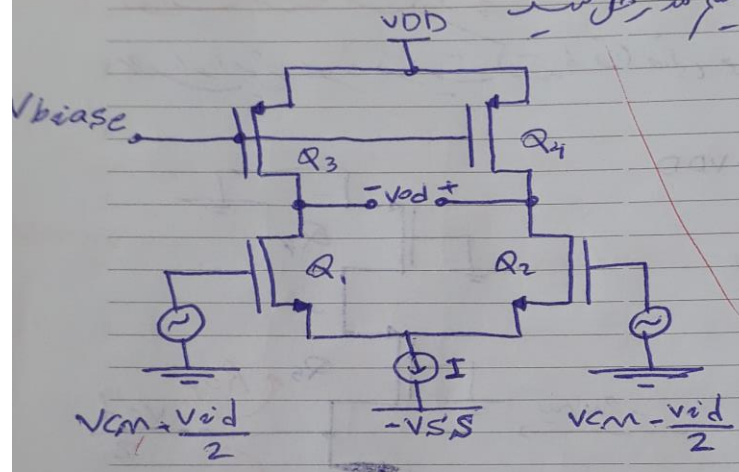 VDD
Vbiase
Q3
Q4
- Vod +
Q1
Q2
I
-VSS
VCM + Vid/2
VCM - Vid/2